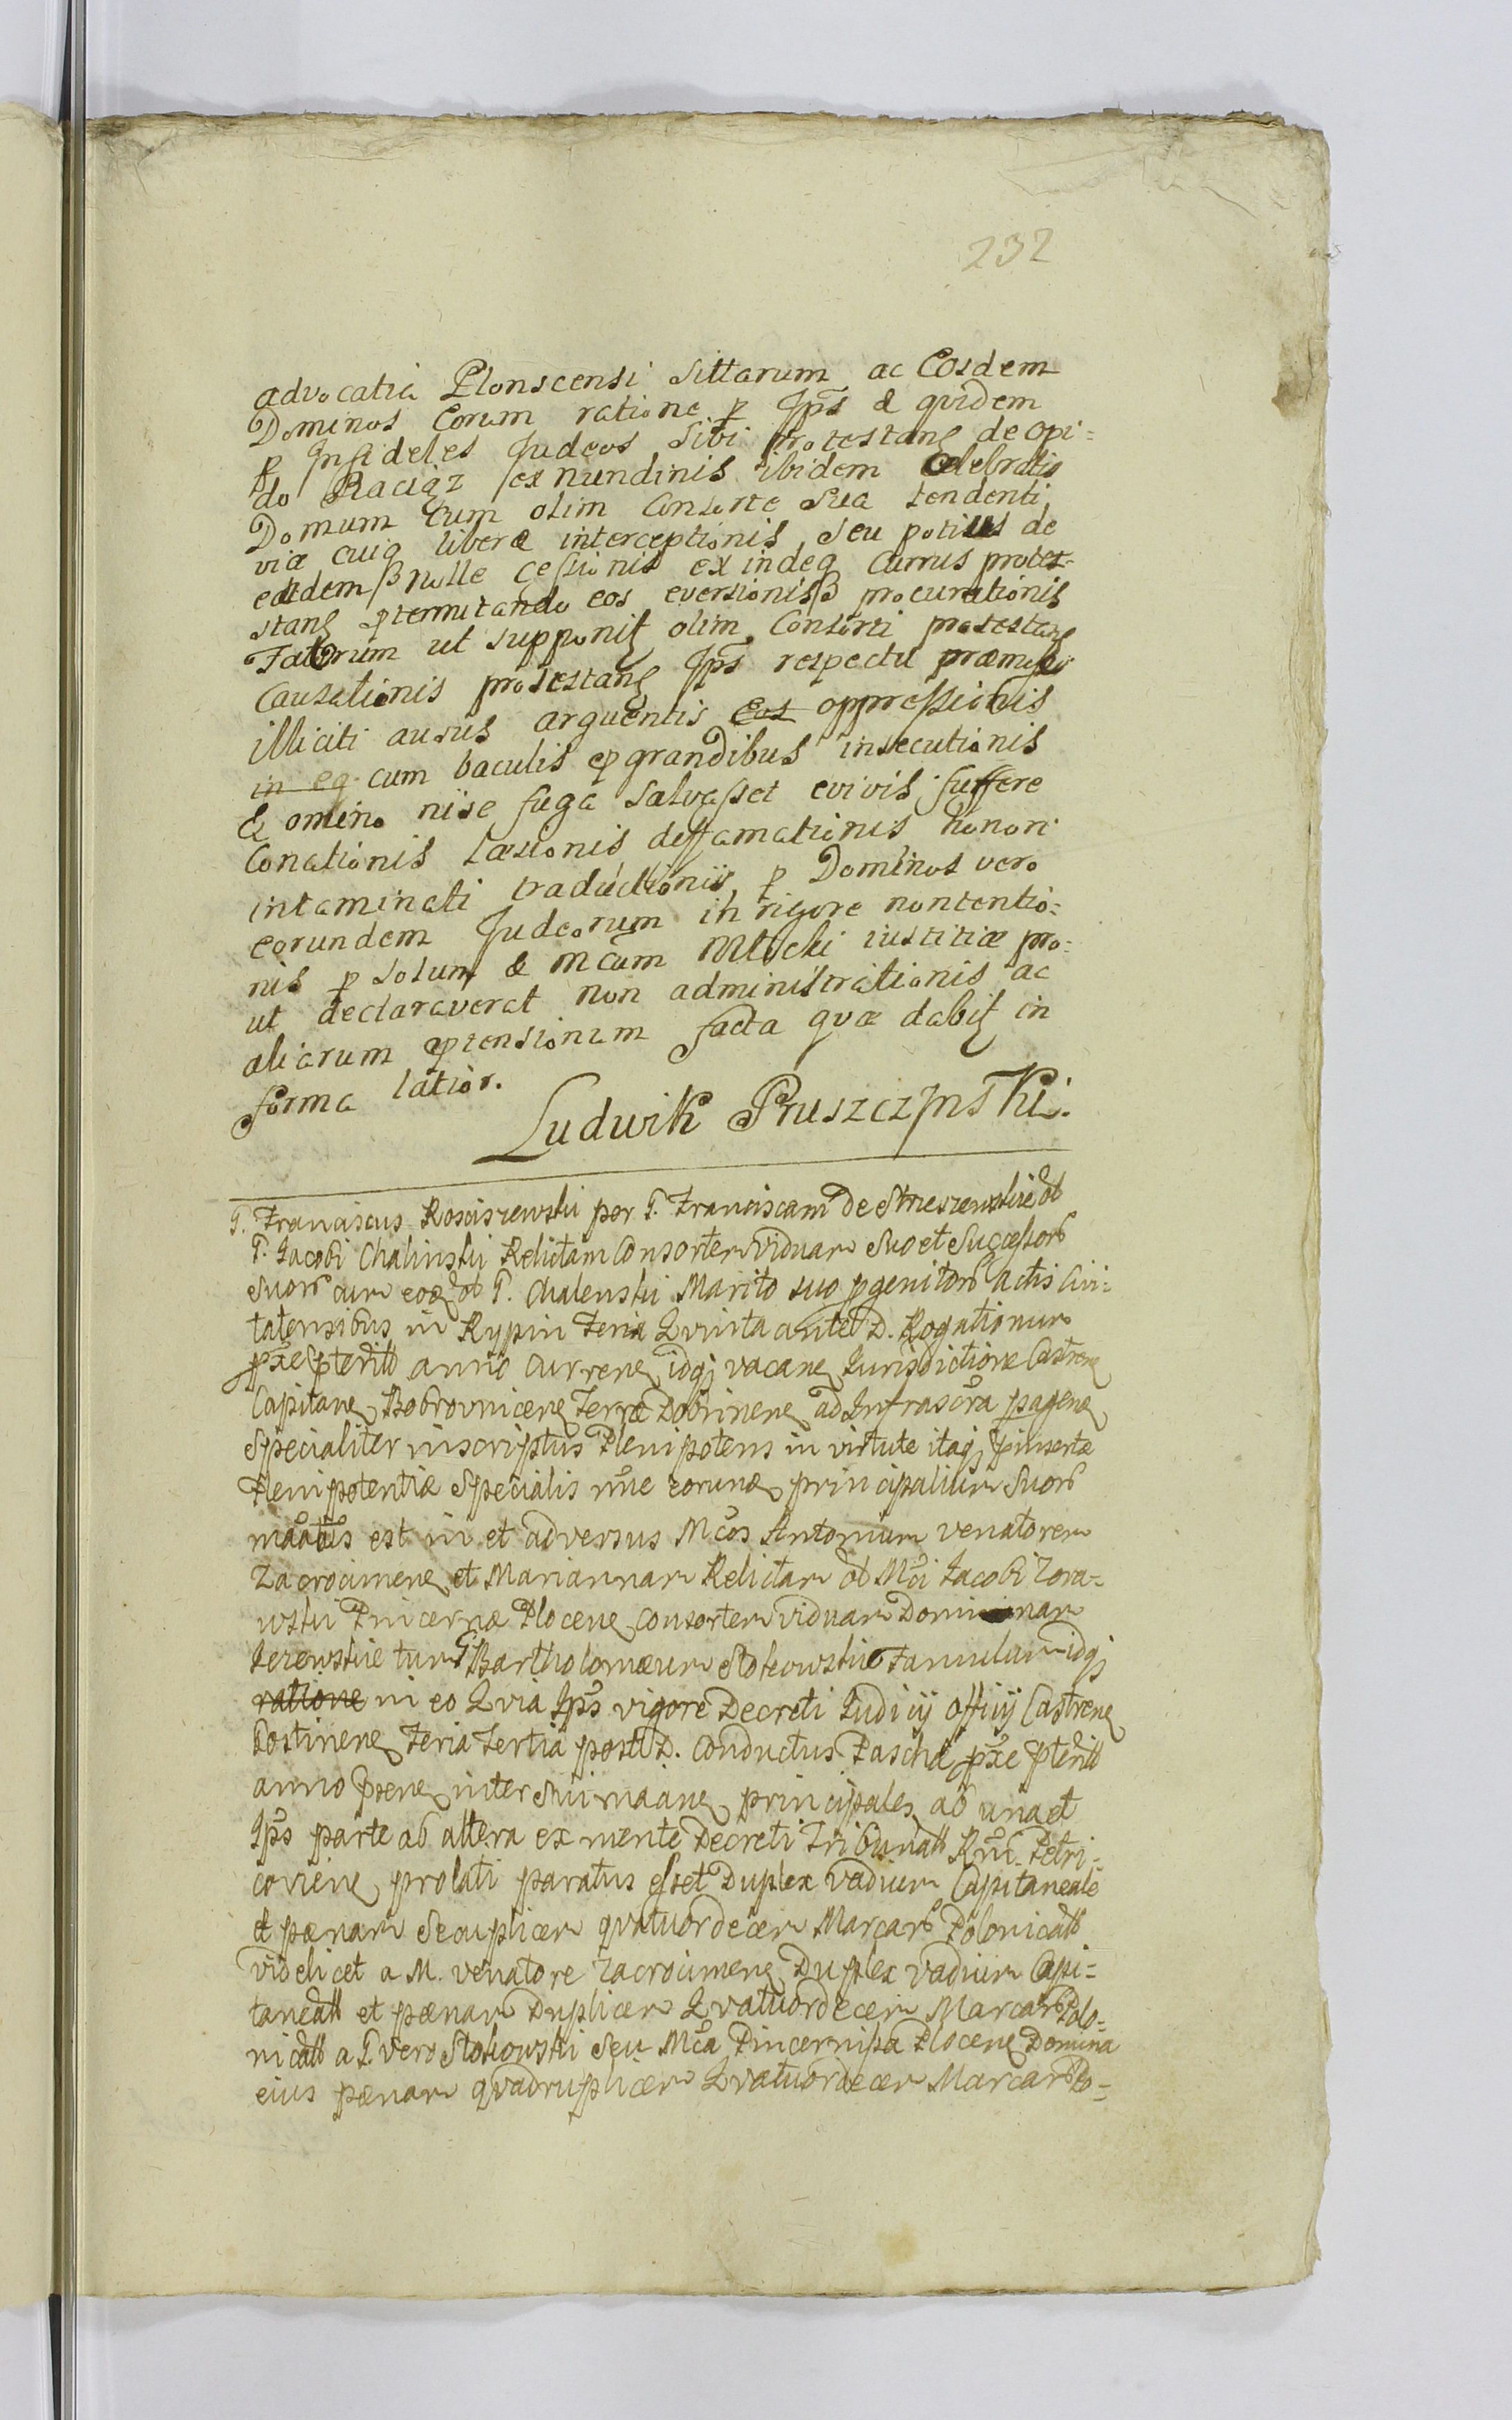 232
advocatia Plonscensi Sittarum ac Eosdem
Dominos Eorum ratione p Jps & quidem
p Infideles Judeos Sibi Protestanę de opi=
do Raciąz ex nundinis ibidem celebratis
Domum cum olim Consorte Sua tendenti
viæ cuiq liberæ interceptionis seu potius de
eadem nolle cessionis exindeq currus protes-
stanę ptermitando eos eversionis procurationis
Fatorum ut supponit olim Consorti protestanę
Causationis protestanę Jps respectu præmissi
illiciti ausus arguentis Eos oppressionis
in eq cum baculis pgrandibus insecutionis
& omino nise fuga salvasset evivis suffere
Conationis Læsionis deffamationis honori
intaminati traductionis p Dominos vero
eorundem Judeorum in rigore nontentio=
nis p solum & Mcum Mlocki iustitiæ pro=
ut declaraverat non administrationis ac
aliarum ptensionum facta quæ dabit in
forma latior.
Ludwik Pruszczynski.
G. Franciscus Rosciszewski per G. Franciscam de
G. Jacobi Chalinski Relictam Consortem Viduam Suo et Successorb
Suorb cum eoę ob G. Chalenski Marito suo pgenitorb actis Civi-
tatensibus in Rypin Feria Qvinta ante D. Rogationum
pxe pteritt anno currenę idqj vacanę Jurisdictione Castrenę
Capitanę Bobrownicenę Terræ Dobrinenę ad Infrascra pagenę
Specialiter inscriptus Plenipotens in virtute itaqj pinsertæ
Plenipotentiæ Specialis nne eorunę principalium Suorb
est in et adversus Mcos Antonium venatorem
Zacrocimenę et Mariannam Relictam ob Mci Jacobi Zora-
wski Pincernæ Plocenę consortem viduam Dominam
tum G. Bartholomæum Stokowskie Famulum idqj
ratione in eo Qvia Jps vigore Decreti Judicij officij Castrenę
Gostinenę Feria Tertia post D. Conductus Paschæ pxe pteritt
anno psenę inter principales ab una et
Jps parte ab altera ex mente Decreti Tribunatt Rni Petri-
covienę prolati paratus esset Duplex vadium Capitaneale
et pænam Sexuplicem qvatuordecem Marcarb Polonicatt
videlicet a M. venatore Zacrocimenę Duplex vadium Capi=
taneatt et pænam Duplicem Qvatuordecem Marcarb Polo=
nicatt a G. vero Stokowski seu Mca Pincernissa Plocenę Domina
eius pænam qvadruplicem Qvatuordecem Marcarb Po=